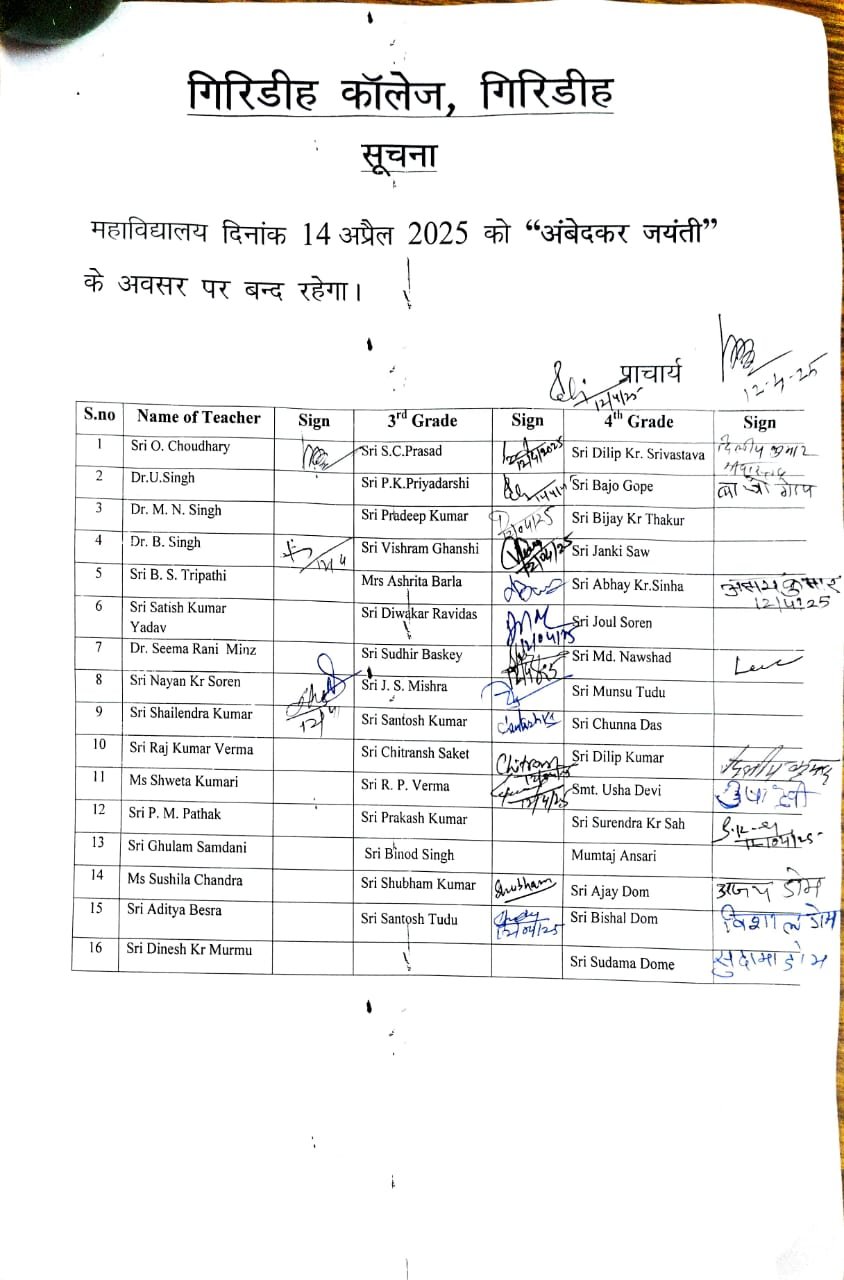 गिरिडीह कॉलेज, गिरिडीह
सूचना
महाविद्यालय दिनांक 14 अप्रैल 2025 को “अंबेदकर जयंती”
के अवसर पर बन्द रहेगा।
12-4-25
प्राचार्य
12/4/25
S.no Name of Teacher Sign 3rd Grade Sign 4th Grade Sign
1 Sri O. Choudhary Sri S.C.Prasad 12/4/2025 Sri Dilip Kr. Srivastava दिलीप कुमार
2 Dr.U.Singh Sri P.K.Priyadarshi Sri Bajo Gope
3 Dr. M. N. Singh Sri Pradeep Kumar 12/04/25 Sri Bijay Kr Thakur
4 Dr. B. Singh 12/4 Sri Vishram Ghanshi 12/04/25 Sri Janki Saw
5 Sri B. S. Tripathi Mrs Ashrita Barla Sri Abhay Kr.Sinha अभय कुमार 12/4/25
6 Sri Satish Kumar Yadav Sri Diwakar Ravidas 12/04/25 Sri Joul Soren
7 Dr. Seema Rani Minz Sri Sudhir Baskey 12/4/25 Sri Md. Nawshad
8 Sri Nayan Kr Soren Sri J. S. Mishra Sri Munsu Tudu
9 Sri Shailendra Kumar 12/4 Sri Santosh Kumar Santosh Kr Sri Chunna Das
10 Sri Raj Kumar Verma Sri Chitransh Saket Chitransh 12/04/25 Sri Dilip Kumar दिलीप कुमार
11 Ms Shweta Kumari Sri R. P. Verma 12/4/25 Smt. Usha Devi उषा देवी
12 Sri P. M. Pathak Sri Prakash Kumar Sri Surendra Kr Sah 12/04/25
13 Sri Ghulam Samdani Sri Binod Singh Mumtaj Ansari
14 Ms Sushila Chandra Sri Shubham Kumar Shubham Sri Ajay Dom अजय डोम
15 Sri Aditya Besra Sri Santosh Tudu 12/04/25 Sri Bishal Dom विशाल डोम
16 Sri Dinesh Kr Murmu Sri Sudama Dome सुदामा डोम